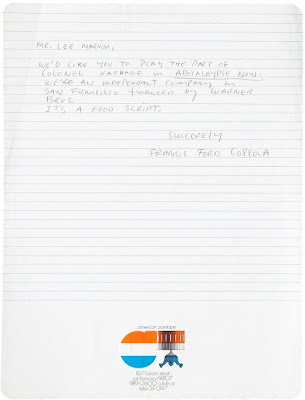 MR. LEE MARVIN,
WE'D LIKE YOU TO PLAY THE PART OF
COLONEL KARNAGE IN APOCALYPSE NOW.
WE'RE AN INDEPENDANT COMPANY IN
SAN FRANCISCO FINANCED BY WARNER
BROS.
IT'S A GOOD SCRIPT.
SINCERELY
FRANCIS FORD COPPOLA
american zoetrope
san francisco 94107